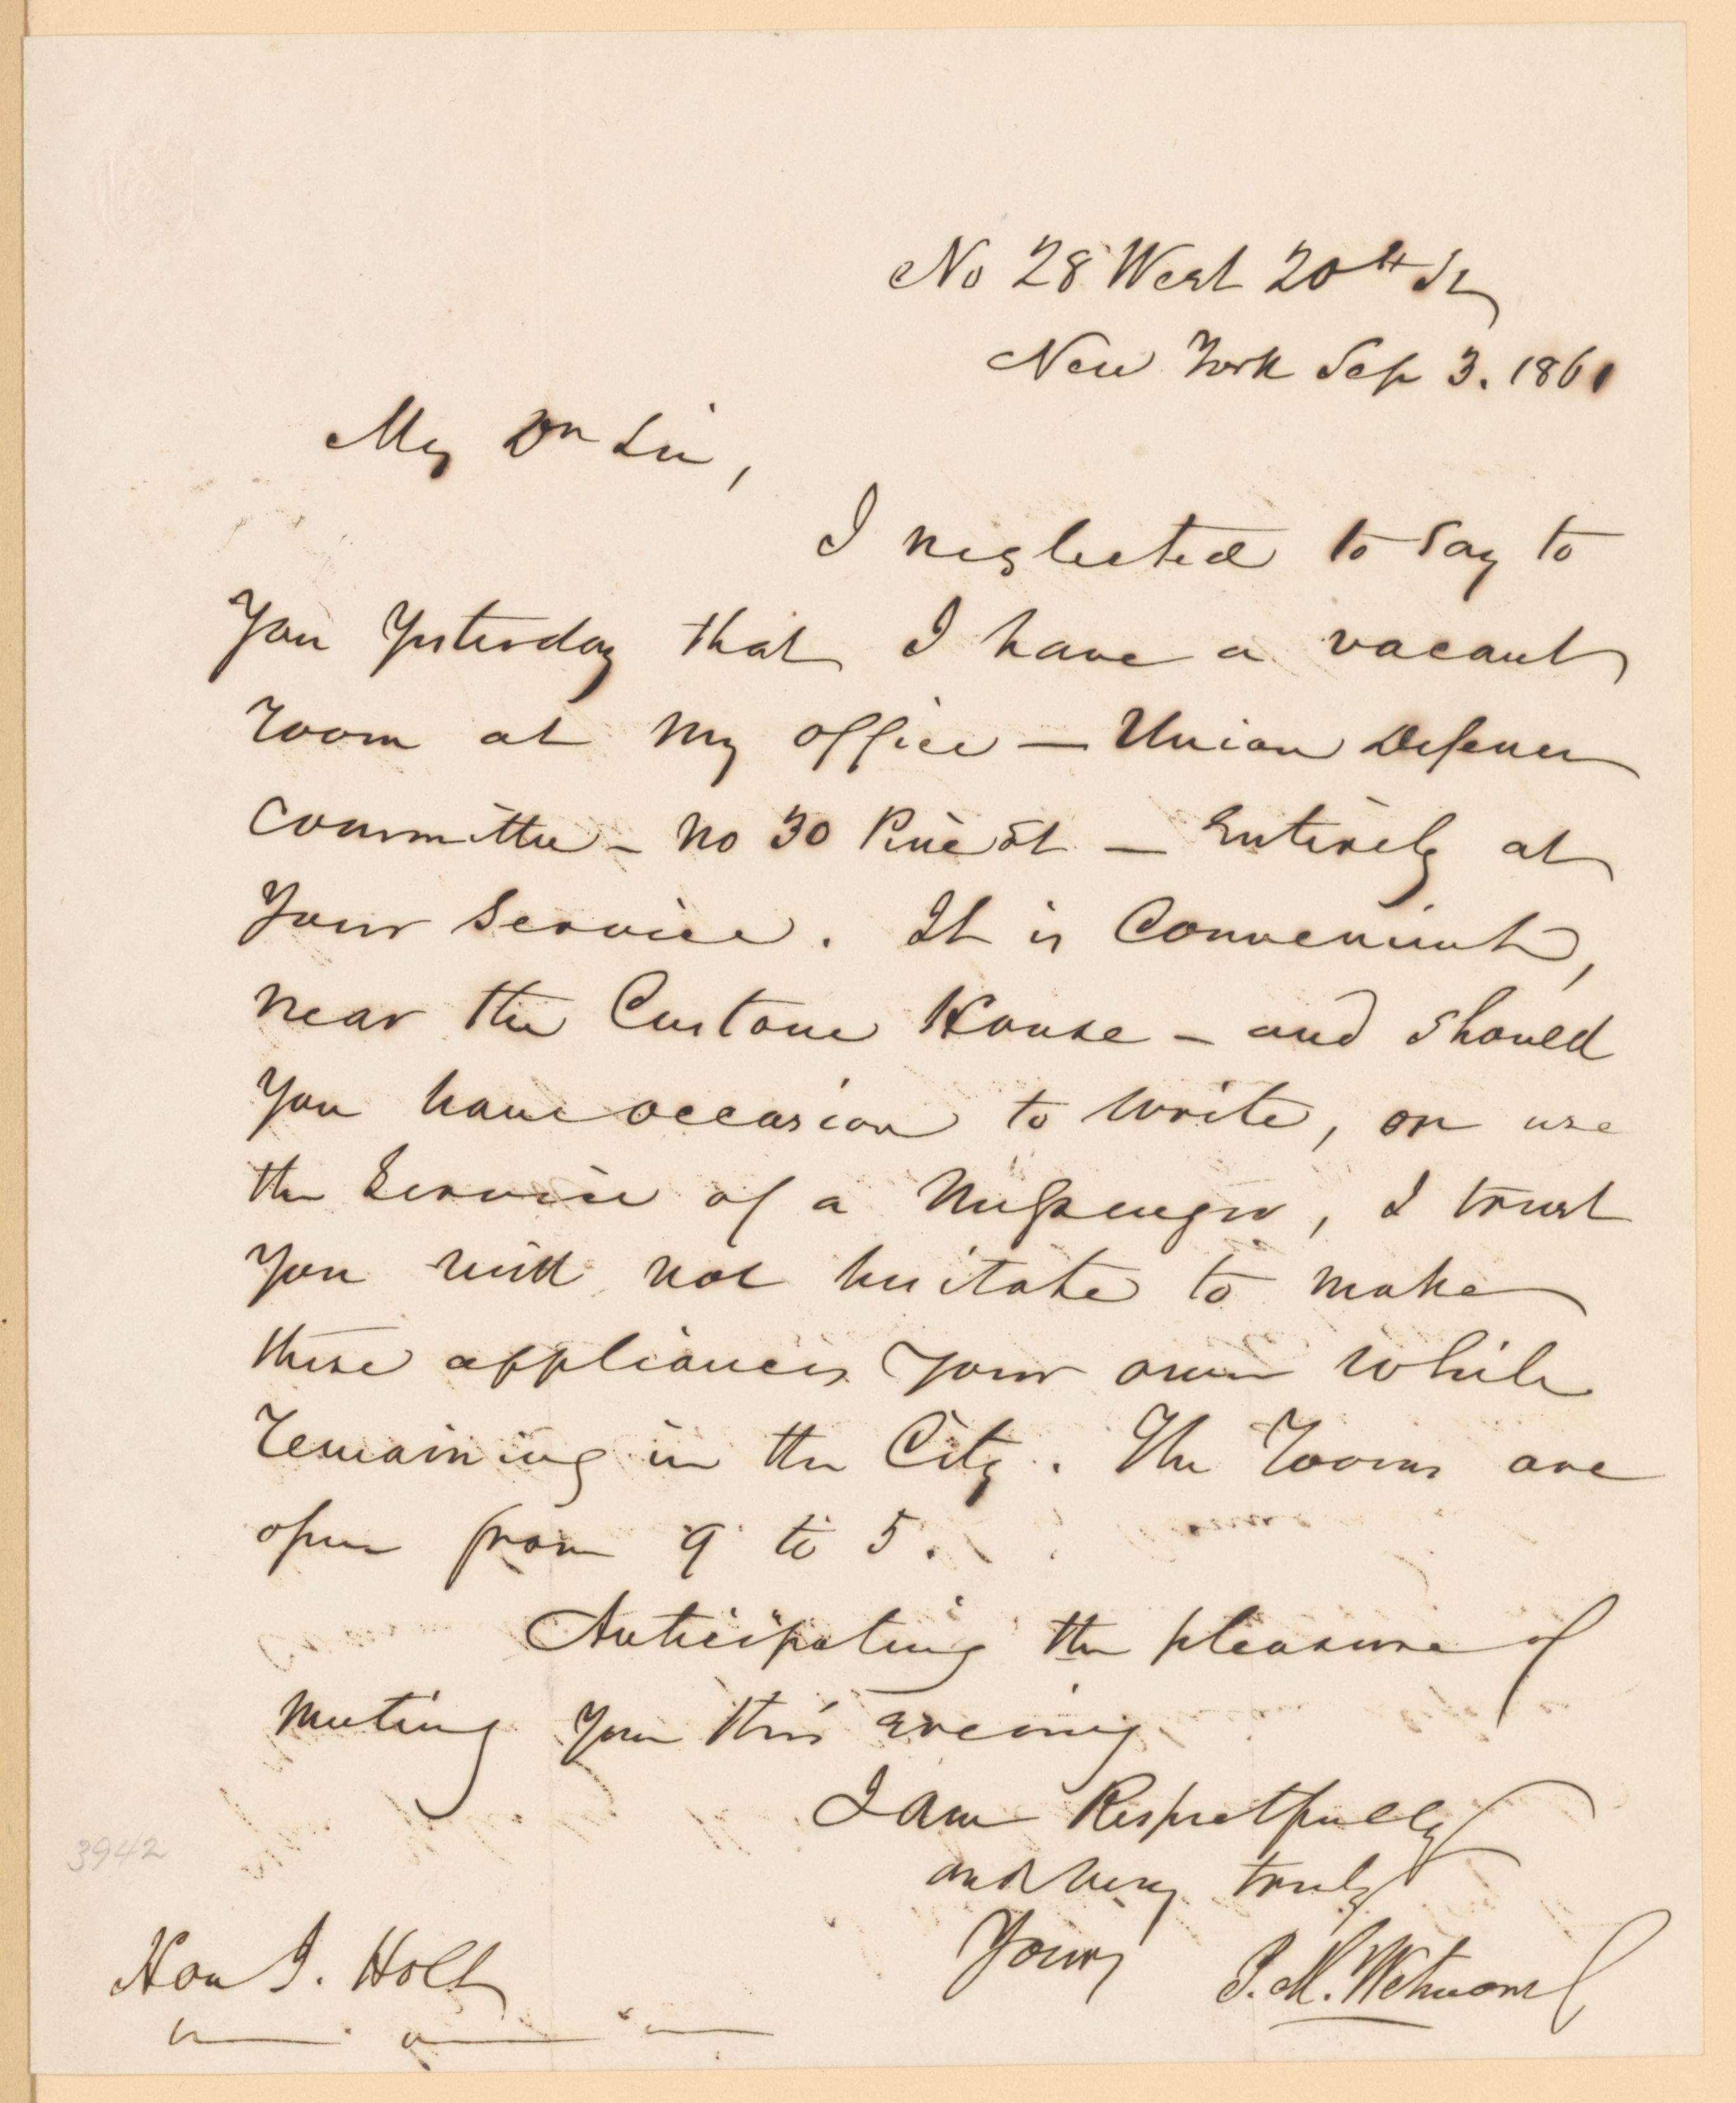 No 28 West 20th St
New York Sep 3. 1861
My Dr Sir,
I neglected to say to
you yesterday that I have a vacant
room at my office — Union Defence
Committee – No 30 Pine St — Entirely at
your service. It is Convenient,
near the Custom House – and should
you have occasion to write, or use
the service of a messenger, I trust
you will not hesitate to make
these appliances your own while
remaining in the City. The rooms are
open from 9 to 5.
Anticipating the pleasure of
meeting you this evening
I am Respectfully
and very truly
Yours P. M. Wetmore
Hon J. Holt
3942